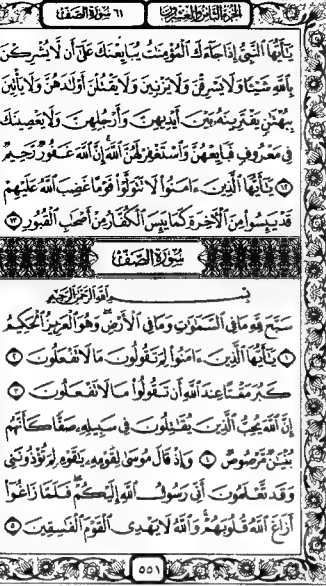 الجزء الثامن والعشرون ٦١ سورة الصف
يَٰٓأَيُّهَا ٱلنَّبِىُّ إِذَا جَآءَكَ ٱلْمُؤْمِنَٰتُ يُبَايِعْنَكَ عَلَىٰٓ أَن لَّا يُشْرِكْنَ
بِٱللَّهِ شَيْـًٔا وَلَا يَسْرِقْنَ وَلَا يَزْنِينَ وَلَا يَقْتُلْنَ أَوْلَٰدَهُنَّ وَلَا يَأْتِينَ
بِبُهْتَٰنٍ يَفْتَرِينَهُۥ بَيْنَ أَيْدِيهِنَّ وَأَرْجُلِهِنَّ وَلَا يَعْصِينَكَ
فِى مَعْرُوفٍ فَبَايِعْهُنَّ وَٱسْتَغْفِرْ لَهُنَّ ٱللَّهَ إِنَّ ٱللَّهَ غَفُورٌ رَّحِيمٌ
١٢ يَٰٓأَيُّهَا ٱلَّذِينَ ءَامَنُوا۟ لَا تَتَوَلَّوْا۟ قَوْمًا غَضِبَ ٱللَّهُ عَلَيْهِمْ
قَدْ يَئِسُوا۟ مِنَ ٱلْءَاخِرَةِ كَمَا يَئِسَ ٱلْكُفَّارُ مِنْ أَصْحَٰبِ ٱلْقُبُورِ ١٣
سورة الصف
بِسْمِ ٱللَّهِ ٱلرَّحْمَٰنِ ٱلرَّحِيمِ
سَبَّحَ لِلَّهِ مَا فِى ٱلسَّمَٰوَٰتِ وَمَا فِى ٱلْأَرْضِ وَهُوَ ٱلْعَزِيزُ ٱلْحَكِيمُ
١ يَٰٓأَيُّهَا ٱلَّذِينَ ءَامَنُوا۟ لِمَ تَقُولُونَ مَا لَا تَفْعَلُونَ ٢
كَبُرَ مَقْتًا عِندَ ٱللَّهِ أَن تَقُولُوا۟ مَا لَا تَفْعَلُونَ ٣
إِنَّ ٱللَّهَ يُحِبُّ ٱلَّذِينَ يُقَٰتِلُونَ فِى سَبِيلِهِۦ صَفًّا كَأَنَّهُم
بُنْيَٰنٌ مَّرْصُوصٌ ٤ وَإِذْ قَالَ مُوسَىٰ لِقَوْمِهِۦ يَٰقَوْمِ لِمَ تُؤْذُونَنِى
وَقَد تَّعْلَمُونَ أَنِّى رَسُولُ ٱللَّهِ إِلَيْكُمْ فَلَمَّا زَاغُوٓا۟
أَزَاغَ ٱللَّهُ قُلُوبَهُمْ وَٱللَّهُ لَا يَهْدِى ٱلْقَوْمَ ٱلْفَٰسِقِينَ ٥
٥٥١